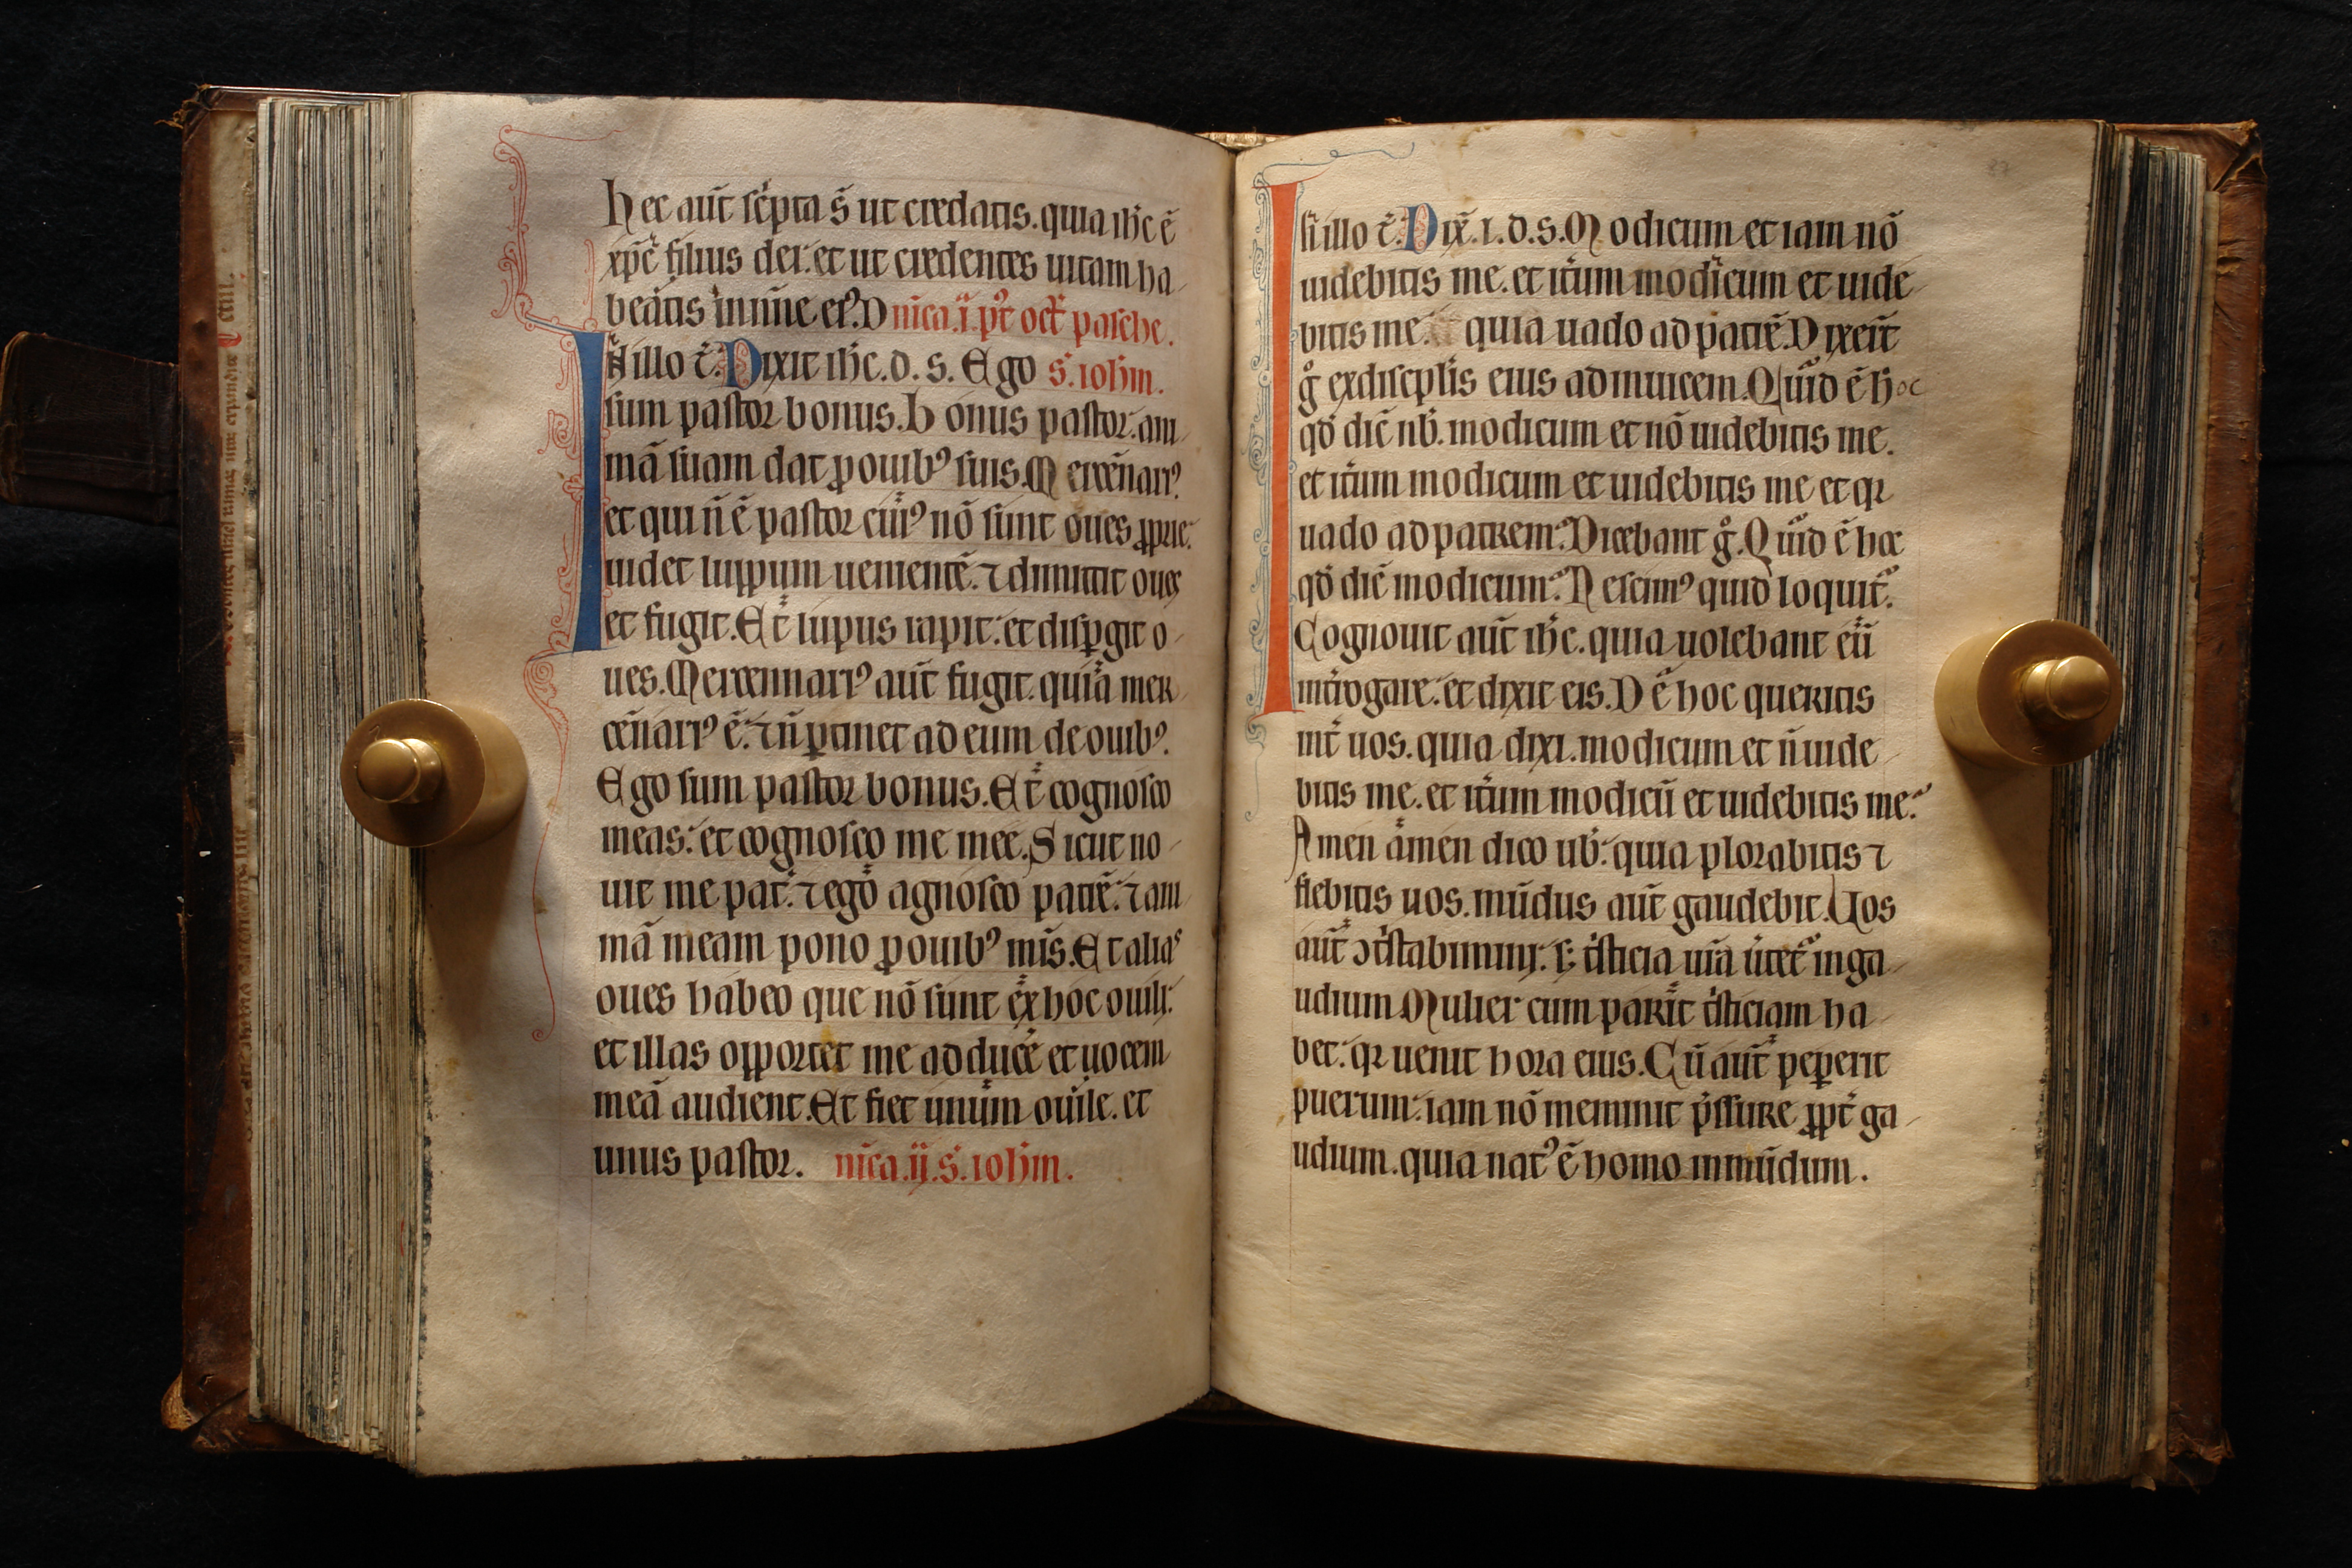 hec aut̄ sc̄pta s̄ ut credatis. quia ih̄c ē
xp̄c filius dei. et ut credentes uitam ha
beatis in nn̄e eiꝰ. Dnīca .i. pꝰt oct̄ pasche.
In illo t̄. Dixit ih̄c. d. s. Ego s. ioh̄m.
sum pastor bonus. Bonus pastor. ani
mā suam dat ꝓ ouibꝰ suis. Mercēnariꝰ
et qui n̄ ē pastor cuiꝰ nō sunt oues ꝓprie.
uidet luppum uenientē. ⁊ dimittit oues
et fugit. Et lupus rapit. et dispgit o
ues. Mercennariꝰ aut̄ fugit. quia mer
cēnariꝰ ē. ⁊ n̄ ptinet ad eum de ouibꝰ.
Ego sum pastor bonus. Et cognosco
meas. et cognosco me mee. Sicut no
uit me pat̄. ⁊ ego agnosco patrē. ⁊ ani
mā meam pono ꝓ ouibꝰ mīs. Et alias
oues habeo que nō sunt ex hoc ouili.
et illas opportet me adducē et uocem
meā audient. Et fiet unum ouile. et
unus pastor. nīca .ij. s. ioh̄m.
In illo t̄. Dix̄. i. d. s. Modicum et iam nō
uidebitis me. et it̄um modicum et uide
bitis me. quia uado ad patrē. Dixer̄t
g̊ ex disciplīs eius ad inuicem. Quid ē hoc
qd̄ dic̄ nb̄. modicum et nō uidebitis me.
et it̄um modicum et uidebitis me et qꝛ
uado ad patrem. Dicebant g̊. Quid ē hoc
qd̄ dic̄ modicum. Nescimꝰ quid loquit̄.
Cognouit aut̄ ih̄c. quia uolebant eū
int̄rogare. et dixit eis. De hoc queritis
int̄ uos. quia dixi. modicum et n̄ uide
bitis me. et it̄um modicū et uidebitis me.
Amen amen dico ub̄. quia plorabitis ⁊
flebitis uos. mūdus aut̄ gaudebit. Uos
aut̄ ↄt̄stabimini. s; t̄sticia ur̄a u̇tet̄ in ga
udium. Mulier cum parit t̄sticiam ha
bet. qꝛ uenit hora eius. Cū aut̄ pepit
puerum. iam nō meminit p̄ssure ꝓpt̄ ga
udium. quia natꝰ ē homo in mūdum.